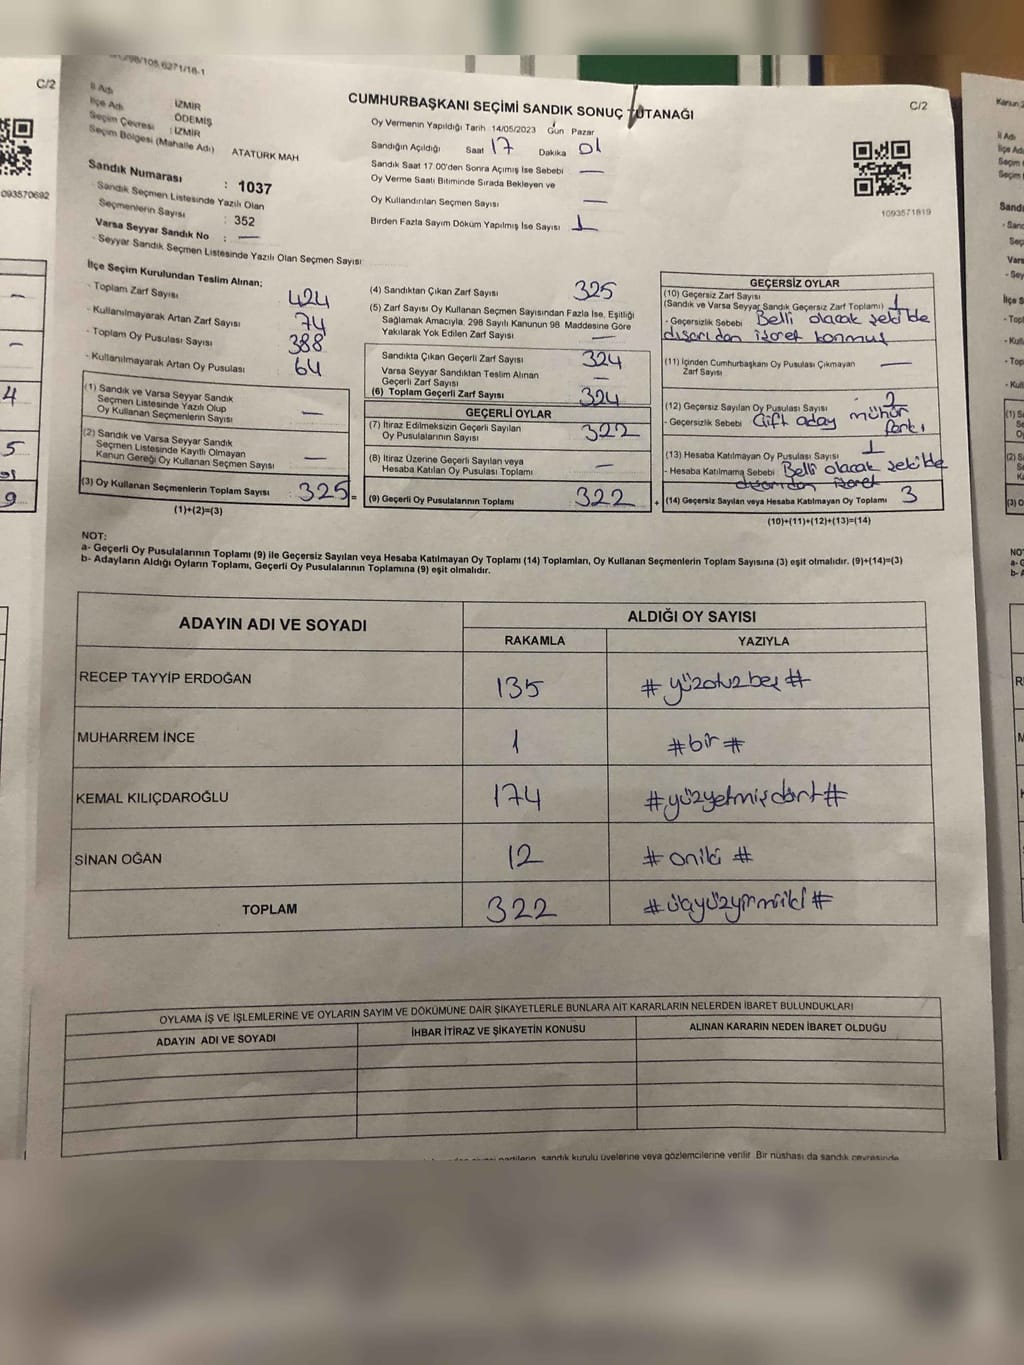 C/2
CUMHURBAŞKANI SEÇİMİ SANDIK SONUÇ TUTANAĞI
C/2
İl Adı : İZMİR
İlçe Adı : ÖDEMİŞ
Seçim Çevresi : İZMİR
Seçim Bölgesi (Mahalle Adı) ATATÜRK MAH
Sandık Numarası : 1037
- Sandık Seçmen Listesinde Yazılı Olan
Seçmenlerin Sayısı : 352
Varsa Seyyar Sandık No : —
- Seyyar Sandık Seçmen Listesinde Yazılı Olan Seçmen Sayısı
Oy Vermenin Yapıldığı Tarih 14/05/2023 Gün Pazar
Sandığın Açıldığı Saat 17 Dakika 01
Sandık Saat 17.00'den Sonra Açımış İse Sebebi —
Oy Verme Saati Bitiminde Sırada Bekleyen ve
Oy Kullandırılan Seçmen Sayısı —
Birden Fazla Sayım Döküm Yapılmış İse Sayısı 1
1093571819
093570692
İlçe Seçim Kurulundan Teslim Alınan;
- Toplam Zarf Sayısı 424
- Kullanılmayarak Artan Zarf Sayısı 74
- Toplam Oy Pusulası Sayısı 388
- Kullanılmayarak Artan Oy Pusulası 64
(1) Sandık ve Varsa Seyyar Sandık
Seçmen Listesinde Yazılı Olup
Oy Kullanan Seçmenlerin Sayısı —
(2) Sandık ve Varsa Seyyar Sandık
Seçmen Listesinde Kayıtlı Olmayan
Kanun Gereği Oy Kullanan Seçmen Sayısı —
(3) Oy Kullanan Seçmenlerin Toplam Sayısı : 325 =
(1)+(2)=(3)
(4) Sandıktan Çıkan Zarf Sayısı 325
(5) Zarf Sayısı Oy Kullanan Seçmen Sayısından Fazla İse, Eşitliği
Sağlamak Amacıyla, 298 Sayılı Kanunun 98 Maddesine Göre
Yakılarak Yok Edilen Zarf Sayısı —
Sandıkta Çıkan Geçerli Zarf Sayısı 324
Varsa Seyyar Sandıktan Teslim Alınan
Geçerli Zarf Sayısı —
(6) Toplam Geçerli Zarf Sayısı 324
GEÇERLİ OYLAR
(7) İtiraz Edilmeksizin Geçerli Sayılan
Oy Pusulalarının Sayısı 322
(8) İtiraz Üzerine Geçerli Sayılan veya
Hesaba Katılan Oy Pusulası Toplamı —
(9) Geçerli Oy Pusulalarının Toplamı 322 +
GEÇERSİZ OYLAR
(10) Geçersiz Zarf Sayısı
(Sandık ve Varsa Seyyar Sandık Geçersiz Zarf Toplamı) 1
- Geçersizlik Sebebi Belli olacak şekilde
dışarıdan işaret konmuş
(11) İçinden Cumhurbaşkanı Oy Pusulası Çıkmayan
Zarf Sayısı —
(12) Geçersiz Sayılan Oy Pusulası Sayısı 2
- Geçersizlik Sebebi Çift aday mühür
farkı
(13) Hesaba Katılmayan Oy Pusulası Sayısı 1
- Hesaba Katılmama Sebebi Belli olacak şekilde
dışarıdan işaret
(14) Geçersiz Sayılan veya Hesaba Katılmayan Oy Toplamı 3
(10)+(11)+(12)+(13)=(14)
NOT:
a- Geçerli Oy Pusulalarının Toplamı (9) ile Geçersiz Sayılan veya Hesaba Katılmayan Oy Toplamı (14) Toplamları, Oy Kullanan Seçmenlerin Toplam Sayısına (3) eşit olmalıdır. (9)+(14)=(3)
b- Adayların Aldığı Oyların Toplamı, Geçerli Oy Pusulalarının Toplamına (9) eşit olmalıdır.
ADAYIN ADI VE SOYADI
ALDIĞI OY SAYISI
RAKAMLA YAZIYLA
RECEP TAYYİP ERDOĞAN 135 # yüzotuzbeş #
MUHARREM İNCE 1 # bir #
KEMAL KILIÇDAROĞLU 174 # yüzyetmişdört #
SİNAN OĞAN 12 # oniki #
TOPLAM 322 # üçyüzyirmiiki #
OYLAMA İŞ VE İŞLEMLERİNE VE OYLARIN SAYIM VE DÖKÜMÜNE DAİR ŞİKAYETLERLE BUNLARA AİT KARARLARIN NELERDEN İBARET BULUNDUKLARI
ADAYIN ADI VE SOYADI İHBAR İTİRAZ VE ŞİKAYETİN KONUSU ALINAN KARARIN NEDEN İBARET OLDUĞU
sandık kurulu üyelerine veya gözlemcilerine verilir. Bir nüshası da sandık çevresinde